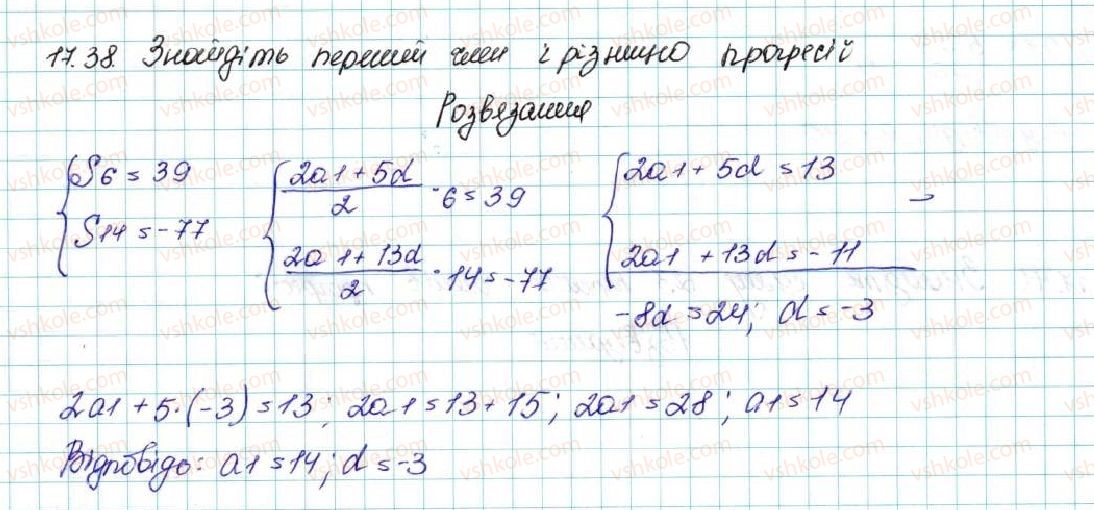 17.38. Знайдіть перший член і різницю прогресії
Розвязання
{S6 = 39 {(2a1 + 5d)/2 · 6 = 39 {2a1 + 5d = 13 -
S14 = -77 (2a1 + 13d)/2 · 14 = -77 2a1 + 13d = -11
-8d = 24; d = -3
2a1 + 5·(-3) = 13; 2a1 = 13 + 15; 2a1 = 28; a1 = 14
Відповідь: a1 = 14; d = -3
vshkole.com